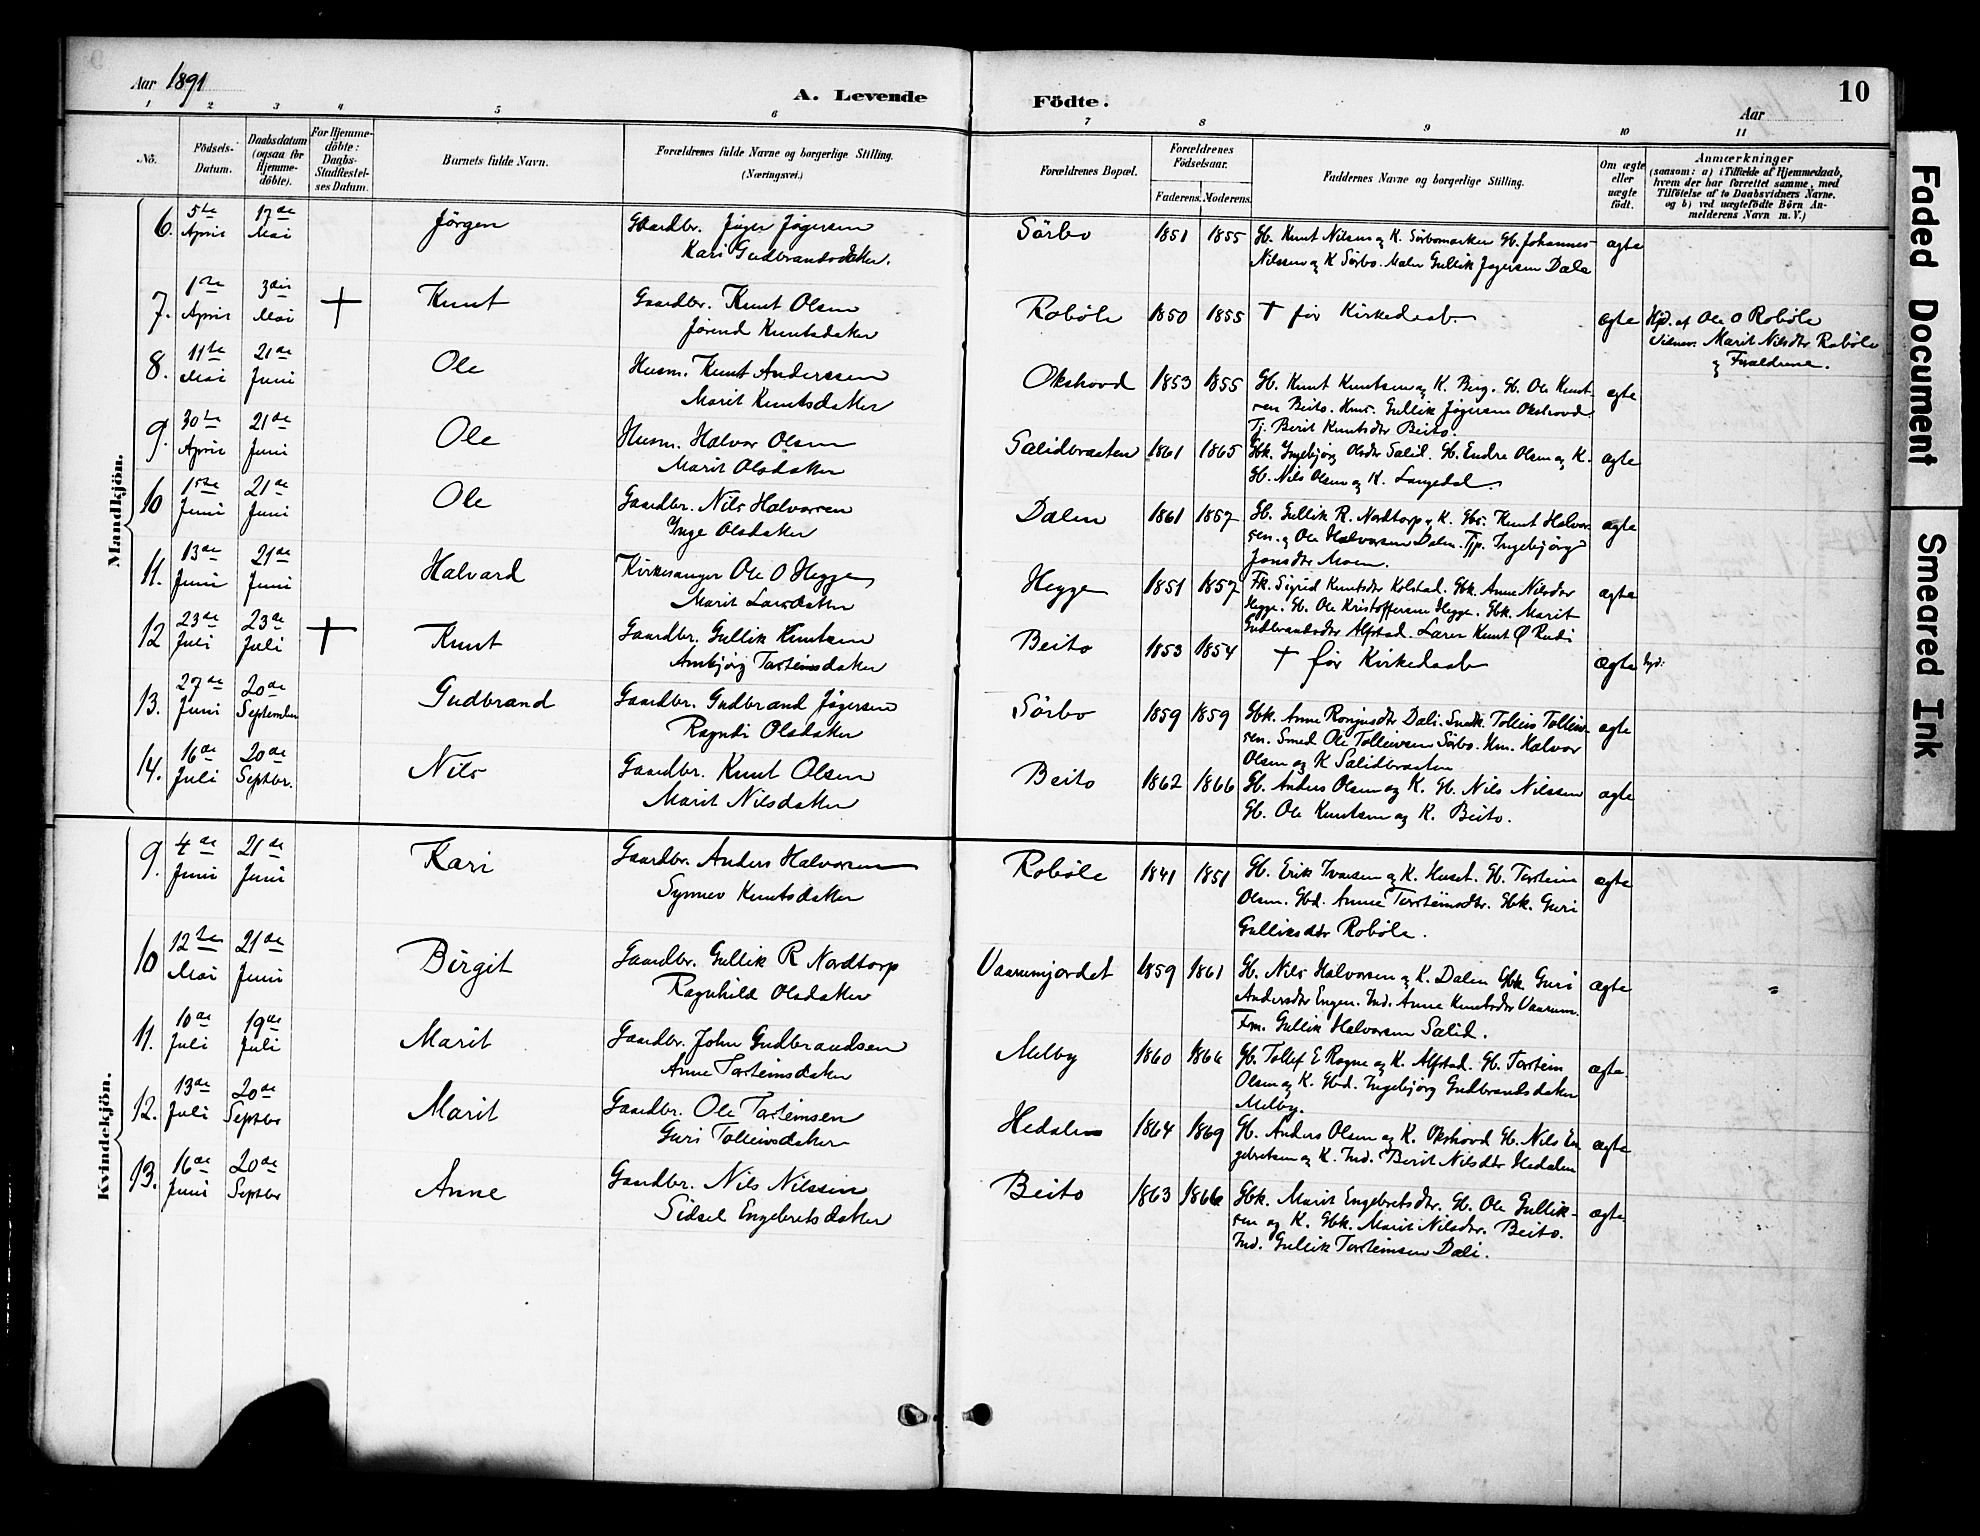 Aar 1891
A. Levende Födte.
Aar
10
1 2 3 4 5 6 7 8 9 10 11
No.
Födsels-Datum.
Daabsdatum (ogsaa for Hjemme-döbte).
For Hjemme-döbte: Daabs-Stadfæstel-ses Datum.
Barnets fulde Navn.
Forældrenes fulde Navne og borgerlige Stilling.
(Næringsvei.)
Forældrenes Bopæl.
Forældrenes Födselsaar.
Faderens. Moderens.
Faddernes Navne og borgerlige Stilling.
Om ægte eller uægte födt.
Anmærkninger
(saasom: a) i Tilfælde af Hjemmedaab, hvem der har forrettet samme, med Tilföielse af to Daabsvidners Navne, og b) ved uægtefödte Börn An-melderens Navn m. V.)
Mandkjön.
6. 5te April 17de Mai Jørgen Gaardbr. Jøger Jøgersen Sörbo 1851 1855 Gb. Knut Nilsen og K. Sørbomarken Gb. Johannes ægte
Kari Gudbrandsdatter. Nilssen og K Sörbo. Maler Gullik Jøgersen Dale
7. 1ste April 3die Mai + Knut Gaardbr. Knut Olsen Robøle 1850 1855 † før Kirkedaab. ægte Hjd. af Ole O Robøle
Jørend Knutsdatter Marit Nilsdtr Robøle
og Forældrene.
8. 11te Mai 21de Juni Ole Husm. Knut Anderssen Okshovd 1853 1855 Gb. Knut Knutsen og K. Berg. Gb. Ole Knut- ægte
Marit Knutsdatter sen Beito. Gullik Jøgersen Okshovd
Tj. Berit Knutsdtr Beito.
9. 30te April 21de Juni Ole Husm. Halvor Olsen Salidbraaten 1861 1865 Gbk. Ingebjørg Olsdtr Salid. Gb. Endre Olsen og K. ægte
Marit Olsdatter Gb. Nils Olsen og K. Langedal.
10 1ste Juni 21de Juni Ole Gaardbr. Nils Halvorsen Dalen 1861 1857 Gb. Gullik R. Nordtorp og K. Gbs. Knut Halvor- ægte
Inge Olsdatter sen og Ole Halvorsen Dalen. Tjp. Ingebjørg
Jonsdtr Moen.
11. 13de Juni 21de Juni Halvard Kirkesanger Ole O Hegge Hegge 1851 1857 Fk. Sigrid Knutsdtr Kolstad. Gbk. Anne Nilsdtr ægte
Marit Larsdatter Hegge. Gb. Ole Kristoffersen Hegge. Gbk. Marit
Gudbrandsdtr Alfstad. Lærer Knut Ø Rudi
12 23de Juli 23de Juli + Knut Gaardbr. Gullik Knutsen Beito 1853 1854 † før Kirkedaab ægte
Ambjørg Torsteinsdatter
13. 27de Juni 20de September Gudbrand Gaardbr. Gudbrand Jøgersen Sörbo 1859 1859 Gbk. Anne Ronjusdtr Dali. Snedk. Tolleiv Tolleiv- ægte
Ragndi Olsdatter sen. Smed Ole Tolleivsen Sörbo. Hm. Halvor
Olsen og K Salidbraaten
14. 16de Juli 20de Septbr. Nils Gaardbr. Knut Olsen Beito 1862 1866 Gb. Anders Olsen og K. Gb. Nils Nilssen ægte
Marit Nilsdatter Gb. Ole Knutsen og K. Beito.
Kvindekjön.
9. 4de Juni 21de Juni Kari Gaardbr. Anders Halvorsen Robøle 1841 1851 Gb. Erik Ivarsen og K. Huset. Gb. Torstein ægte
Synnev Knutsdatter Olsen. Gbd. Anne Torsteinsdtr. Gbk. Guri
Gulliksdtr Robøle.
10 12te Mai 21de Juni Birgit Gaardbr. Gullik R Nordtorp Vaarumjordet 1859 1861 Gb. Nils Halvorsen og K. Dalen Gbk Guri ægte
Ragnhild Olsdatter Andersdtr Engen. Ind. Anne Knutsdtr Vaarum.
Fm. Gullik Halvorsen Salid.
11. 10de Juli 19de Juli Marit Gaardbr. John Gudbrandsen Melby 1860 1866 Gb. Tollef E Rogne og K. Alfstad. Gb. Torstein ægte.
Anne Torsteinsdatter Olsen og K. Gbd. Ingebjørg Gudbrandsdatter
Melby.
12. 13de Juli 20de Septbr Marit Gaardbr. Ole Torsteinsen Hedalen 1864 1869 Gb. Anders Olsen og K. Okshovd Gb. Nils En- ægte
Guri Tolleivsdatter gebretsen og K. Ind. Berit Nilsdtr Hedalen
13. 16de Juni 20de Septbr Anne Gaardbr. Nils Nilssen Beito 1863 1866 Gbk. Marit Engebretsdtr. Gb. Ole Gullik- ægte
Sidsel Engebretsdatter sen og K. Gbk. Marit Nilsdtr. Beito.
Ind. Gullik Torsteinsen Dali.
Faded Document
Smeared Ink